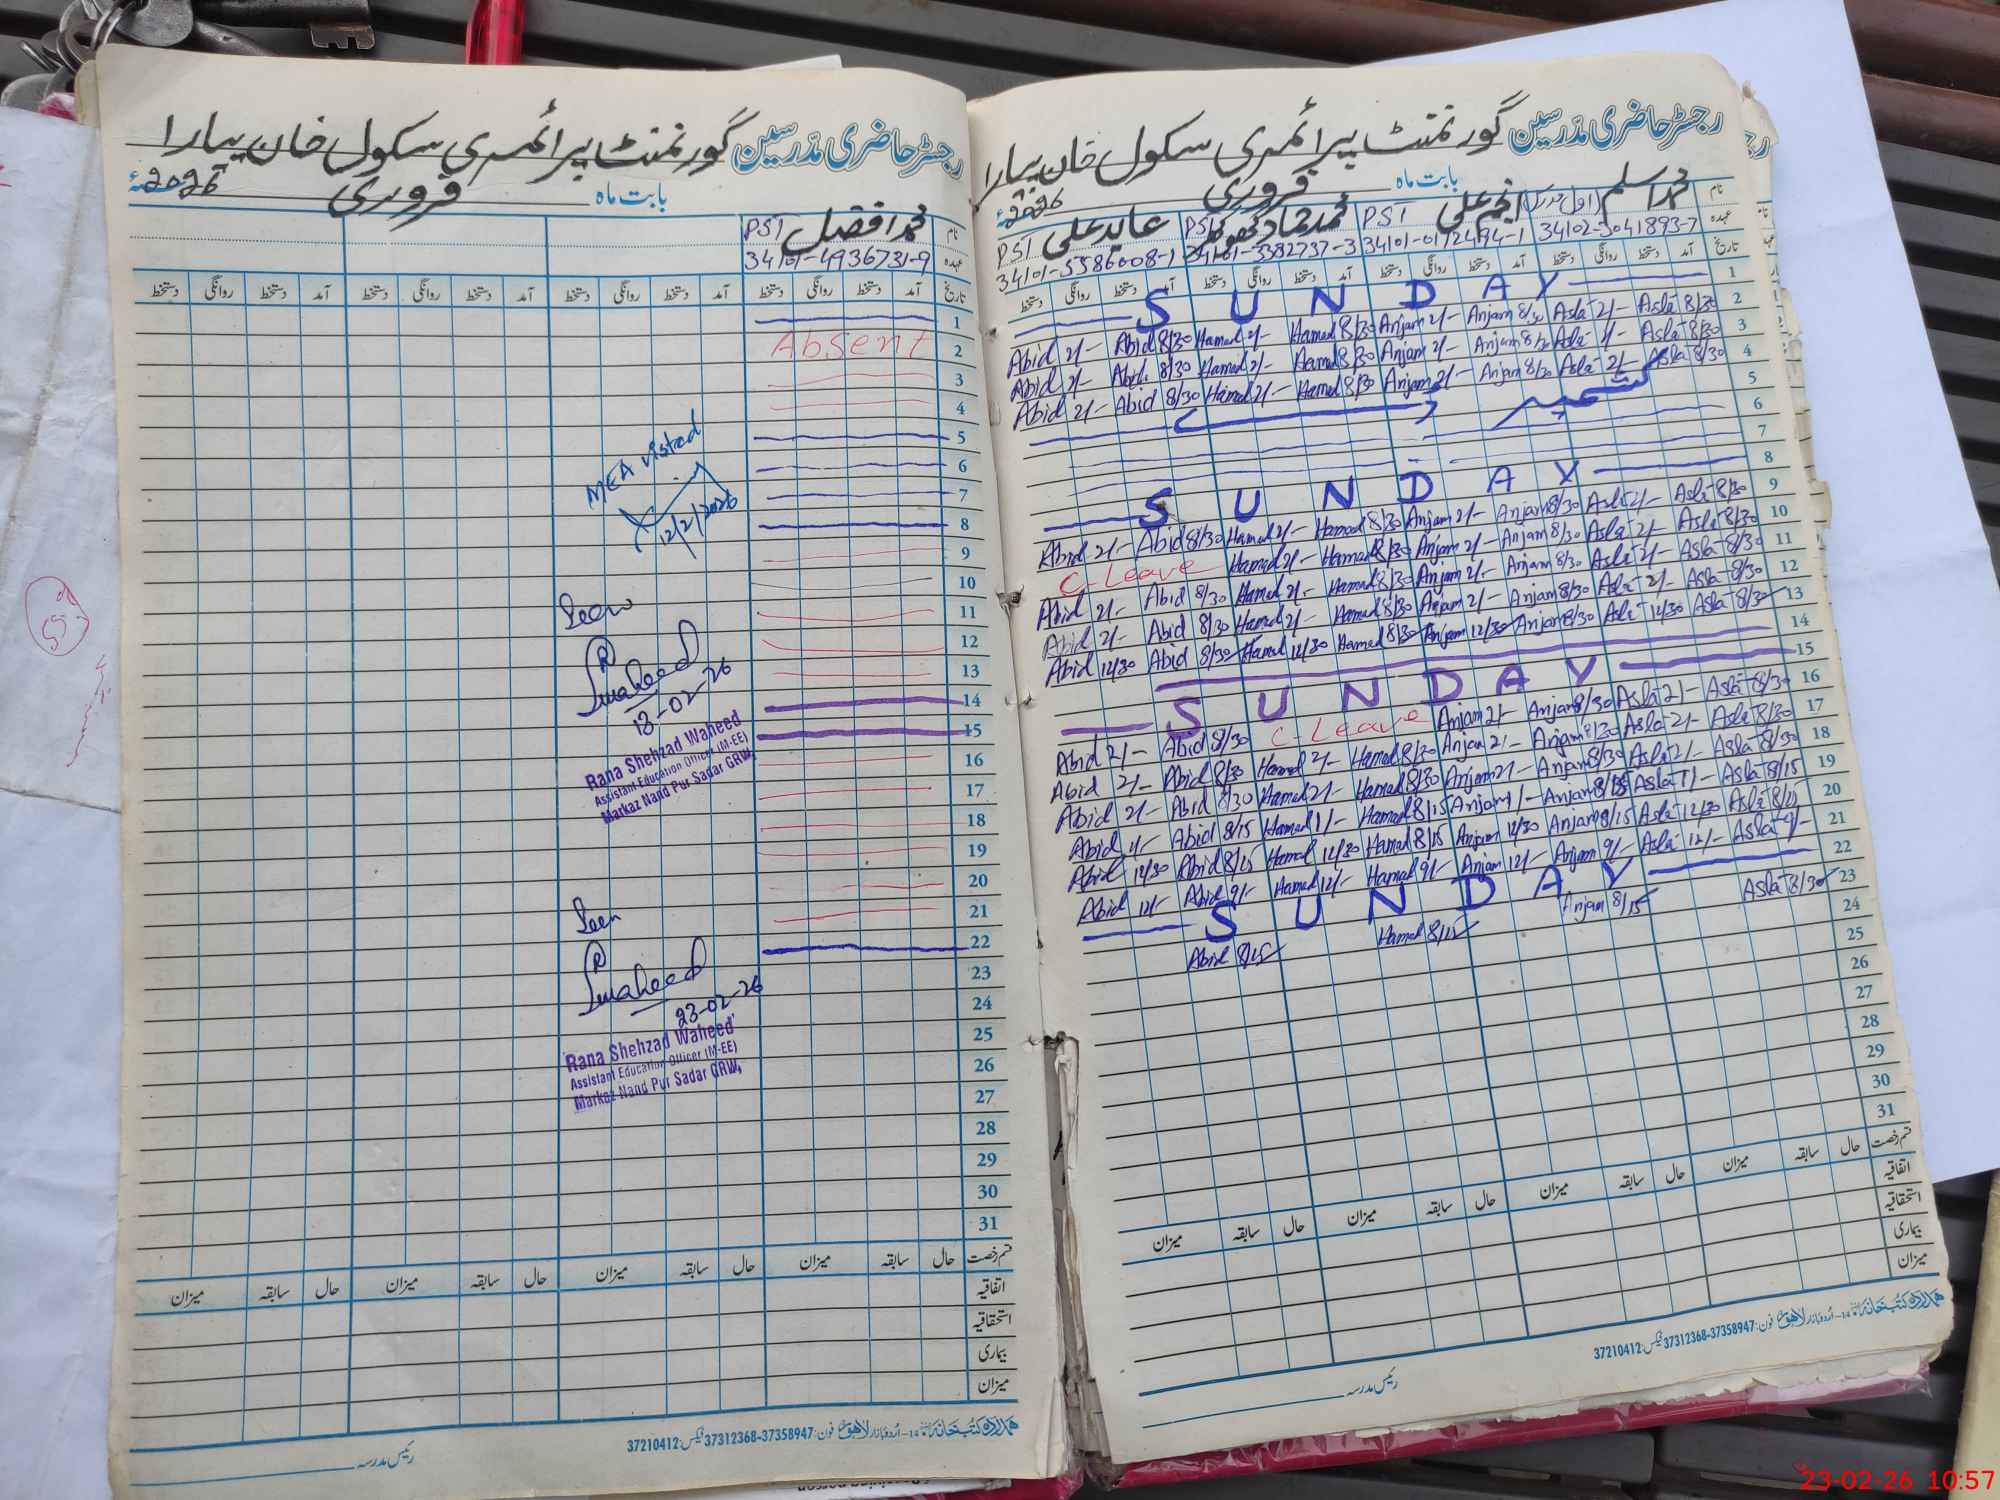 رجسٹر حاضری مدرسین گورنمنٹ پرائمری سکول خان پیارا
بابت ماہ فروری 2026ء
نام محمد افضل PST
عہدہ 34101-4936731-9
تاریخ آمد دستخط روانگی دستخط آمد دستخط روانگی دستخط آمد دستخط روانگی دستخط آمد دستخط روانگی دستخط
1
2 Absent
3
4
5
6
7
8
9
10
11
12
13
14
15
16
17
18
19
20
21
22
23
24
25
26
27
28
29
30
31
MEA visited
12/2/2026
Seen
13-02-26
Rana Shehzad Waheed
Assistant Education Officer (M-EE)
Markaz Nand Pur Sadar GRW,
Seen
23-02-26
Rana Shehzad Waheed
Assistant Education Officer (M-EE)
Markaz Nand Pur Sadar GRW,
قسم رخصت حال سابقہ میزان حال سابقہ میزان حال سابقہ میزان حال سابقہ میزان
اتفاقیہ
استحقاقیہ
بیماری
میزان
ہمدرد کتب خانہ 14-اردو بازار لاہور فون: 37358947-37312368 فیکس: 37210412
رئیس مدرسہ
رجسٹر حاضری مدرسین گورنمنٹ پرائمری سکول خان پیارا
بابت ماہ فروری 2026ء
نام محمد اسلم (اول مدرس) انجم علی PST محمد حماد کھوکھر PST عابد علی PST
عہدہ 34102-3041893-7 34101-0172494-1 34101-3382737-3 34101-5586008-1
تاریخ آمد دستخط روانگی دستخط آمد دستخط روانگی دستخط آمد دستخط روانگی دستخط آمد دستخط روانگی دستخط
1 SUNDAY
2 Abid 2/- Abid 8/30 Hamad 2/- Hamad 8/30 Anjam 2/- Anjam 8/30 Asla 2/- Asla 8/30
3 Abid 2/- Abid 8/30 Hamad 2/- Hamad 8/30 Anjam 2/- Anjam 8/30 Asla 2/- Asla 8/30
4 Abid 2/- Abid 8/30 Hamad 2/- Hamad 8/30 Anjam 2/- Anjam 8/30 Asla 2/- Asla 8/30
5 کشمیر ڈے
6
7
8 SUNDAY
9 Abid 2/- Abid 8/30 Hamad 2/- Hamad 8/30 Anjam 2/- Anjam 8/30 Asla 2/- Asla 8/30
10 C-Leave Hamad 2/- Hamad 8/30 Anjam 2/- Anjam 8/30 Asla 2/- Asla 8/30
11 Abid 2/- Abid 8/30 Hamad 2/- Hamad 8/30 Anjam 2/- Anjam 8/30 Asla 2/- Asla 8/30
12 Abid 2/- Abid 8/30 Hamad 2/- Hamad 8/30 Anjam 2/- Anjam 8/30 Asla 2/- Asla 8/30
13 Abid 12/30 Abid 8/30 Hamad 12/30 Hamad 8/30 Anjam 12/30 Anjam 8/30 Asla 12/30 Asla 8/30
14
15 SUNDAY
16 Abid 2/- Abid 8/30 C-Leave Anjam 2/- Anjam 8/30 Asla 2/- Asla 8/30
17 Abid 2/- Abid 8/30 Hamad 2/- Hamad 8/30 Anjam 2/- Anjam 8/30 Asla 2/- Asla 8/30
18 Abid 2/- Abid 8/30 Hamad 2/- Hamad 8/30 Anjam 2/- Anjam 8/30 Asla 2/- Asla 8/30
19 Abid 1/- Abid 8/15 Hamad 1/- Hamad 8/15 Anjam 1/- Anjam 8/15 Asla 1/- Asla 8/15
20 Abid 12/30 Abid 8/15 Hamad 12/30 Hamad 8/15 Anjam 12/30 Anjam 8/15 Asla 12/30 Asla 8/15
21 Abid 12/- Abid 9/- Hamad 12/- Hamad 9/- Anjam 12/- Anjam 9/- Asla 12/- Asla 9/-
22 SUNDAY
23 Abid 8/15 Hamad 8/15 Anjam 8/15 Asla 8/30
24
25
26
27
28
29
30
31
قسم رخصت حال سابقہ میزان حال سابقہ میزان حال سابقہ میزان حال سابقہ میزان
اتفاقیہ
استحقاقیہ
بیماری
میزان
ہمدرد کتب خانہ 14-اردو بازار لاہور فون: 37358947-37312368 فیکس: 37210412
رئیس مدرسہ
23-02-26 10:57